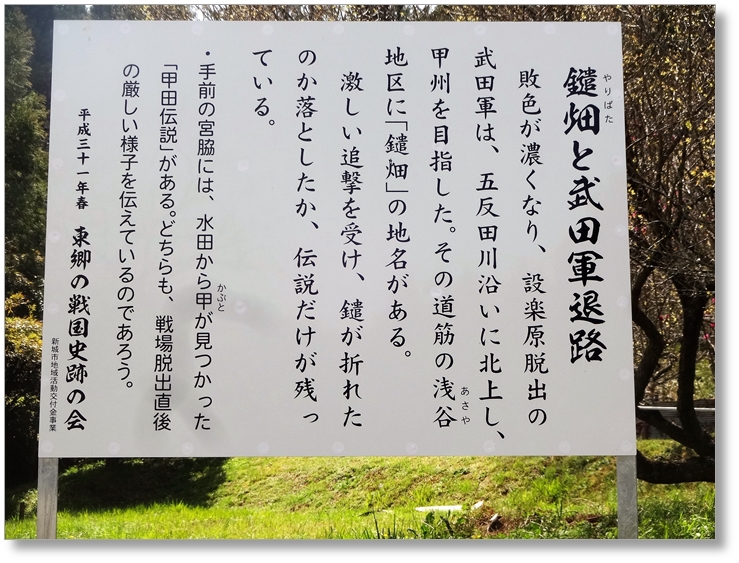 鑓畑と武田軍退路
やりばた
敗色が濃くなり、設楽原脱出の
武田軍は、五反田川沿いに北上し、
甲州を目指した。その道筋の浅谷
あさや
地区に「鑓畑」の地名がある。
激しい追撃を受け、鑓が折れた
のか落としたか、伝説だけが残っ
ている。
・手前の宮脇には、水田から甲が見つかった
かぶと
「甲田伝説」がある。どちらも、戦場脱出直後
の厳しい様子を伝えているのであろう。
平成三十一年春 東郷の戦国史跡の会
新城市地域活動交付金事業